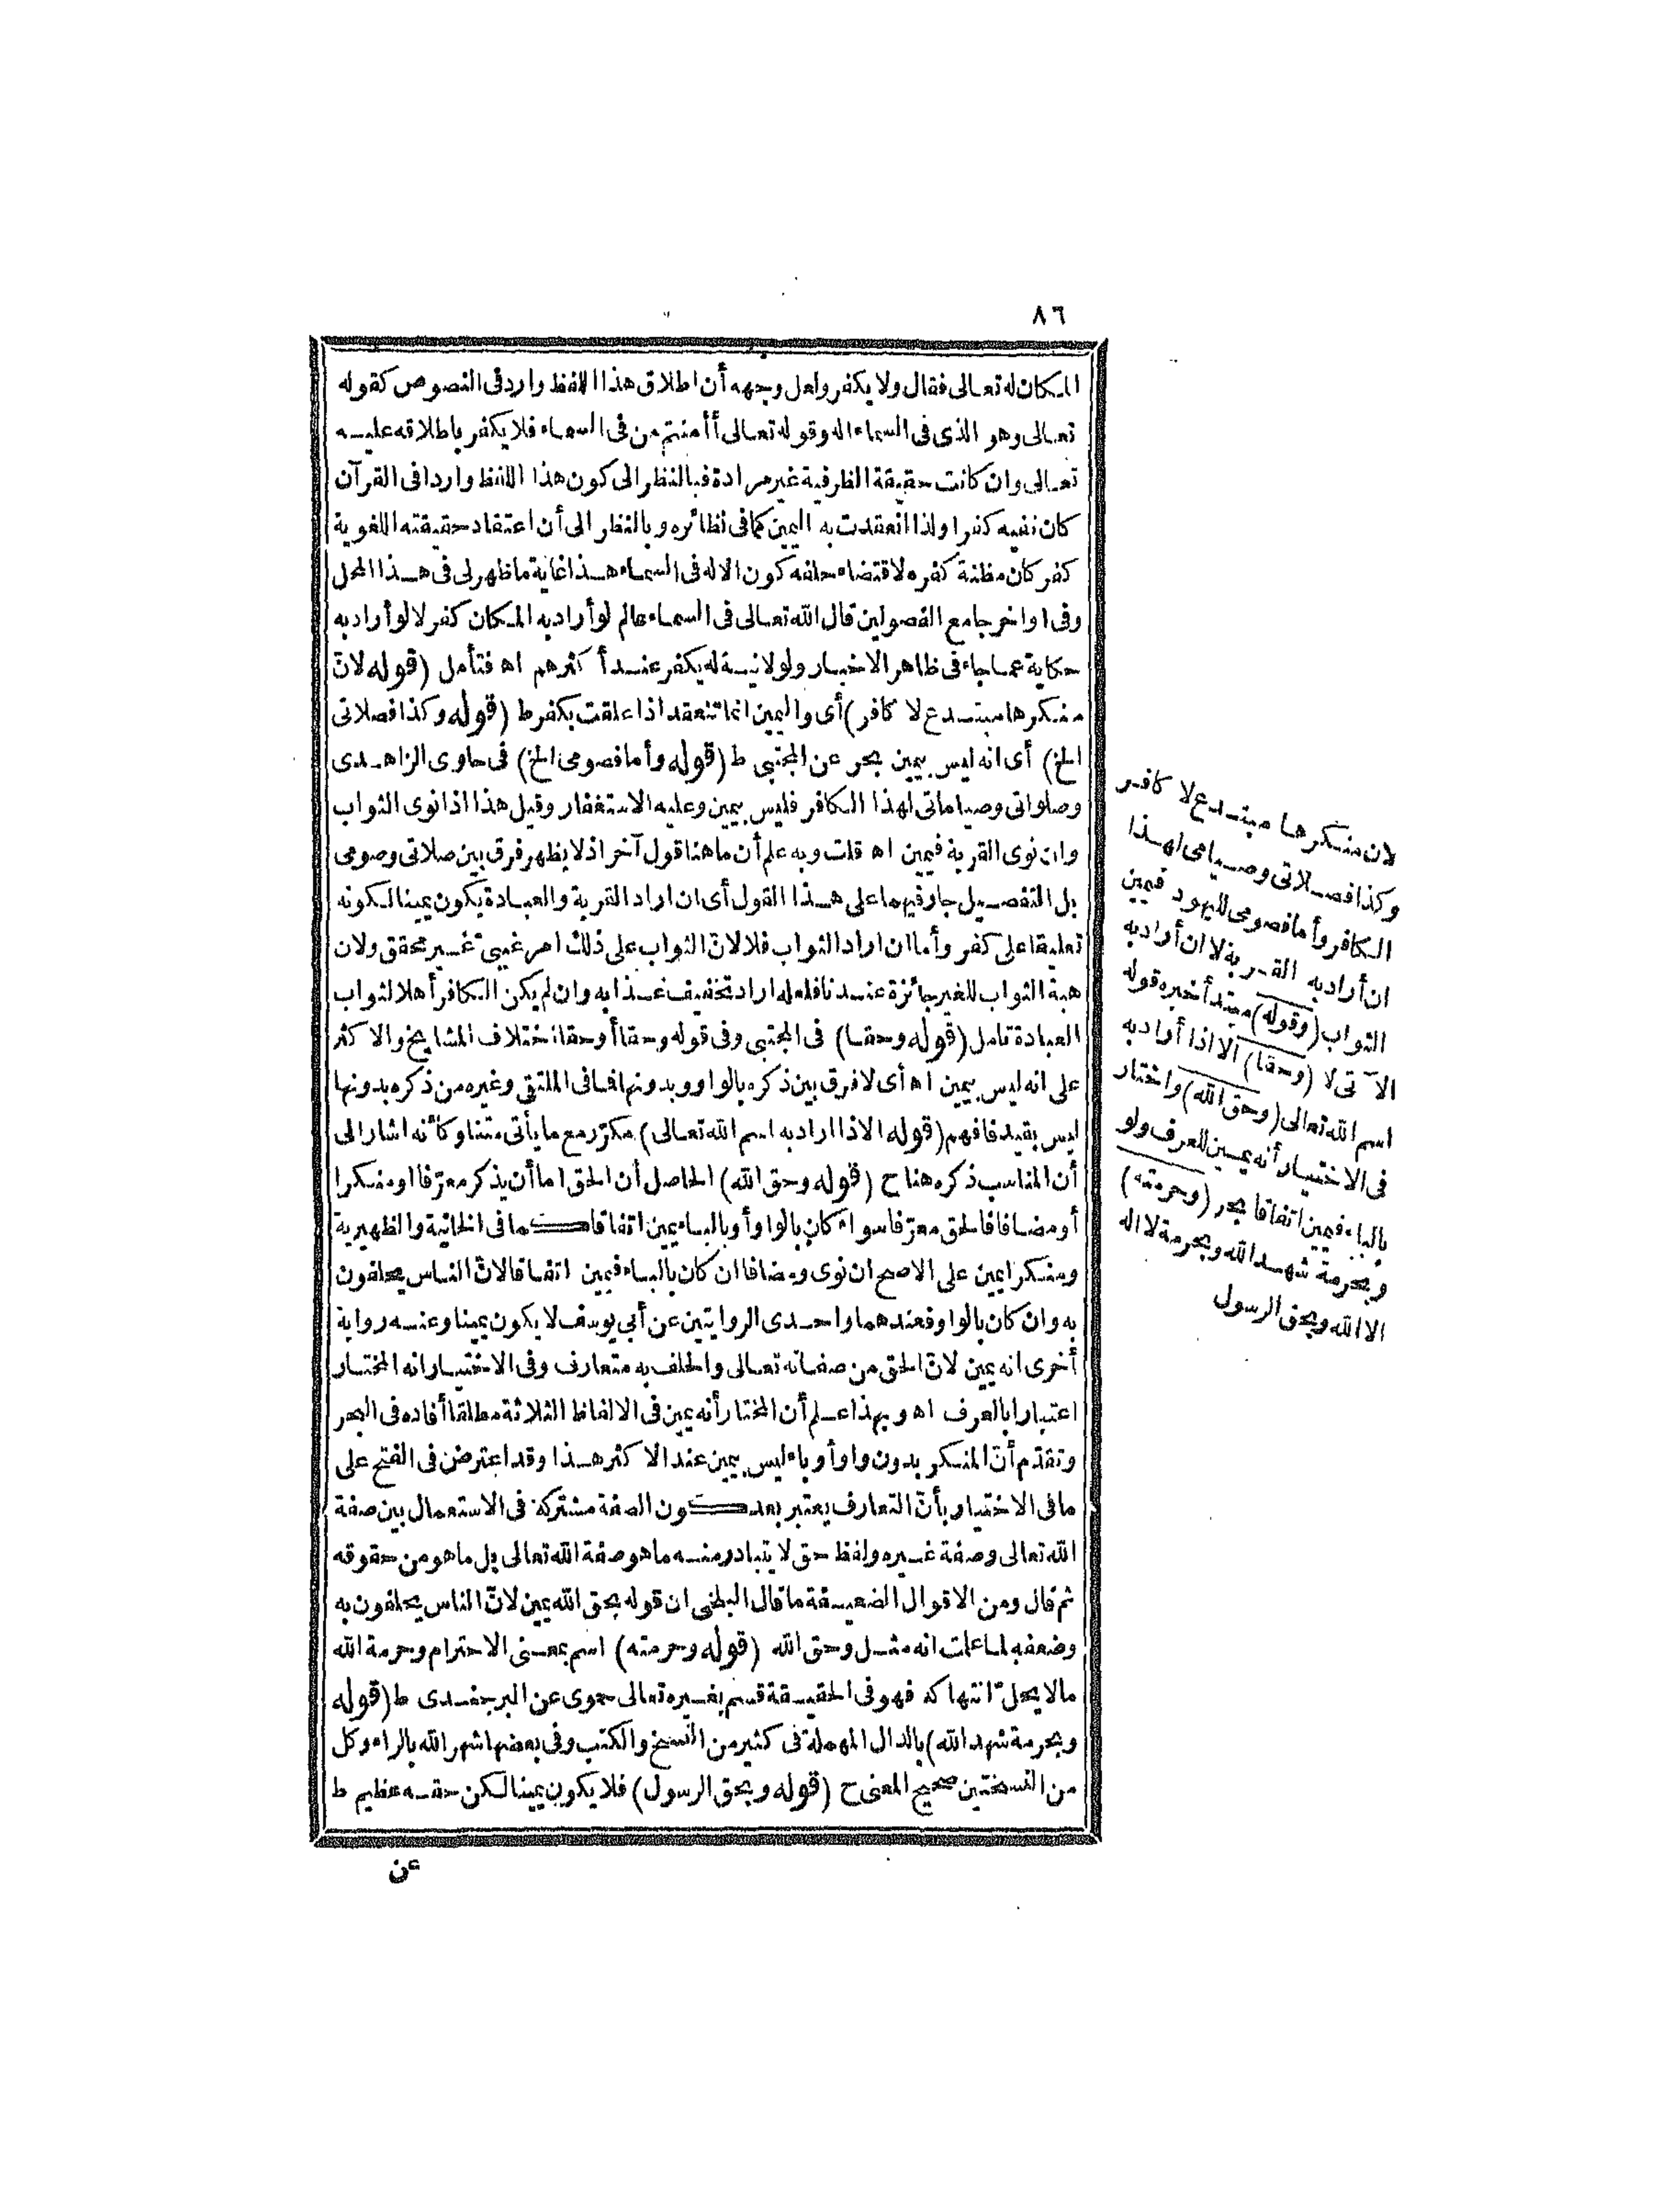 ٨٦
المكان له تعالى فقال ولا يكفر ولعل وجهه أن اطلاق هذا اللفظ وارد فى النصوص كقوله
تعالى وهو الذى فى السماء اله وقوله تعالى أأمنتم من فى السماء فلا يكفر باطلاقه عليه
تعالى وان كانت حقيقة الظرفية غير مرادة فبالنظر الى كون هذا اللفظ واردا فى القرآن
كان نفيه كفرا ولذا انعقدت به اليمين كما فى نظائره وبالنظر الى أن اعتقاد حقيقته اللغوية
كفر كان مظنة كفره لاقتضاء حلفه كون الاله فى السماء هذا غاية ما ظهر لى فى هذا المحل
وفى اواخر جامع الفصولين قال الله تعالى فى السماء عالم لو أراد به المكان كفر لا لو أراد به
حكاية عما جاء فى ظاهر الاخبار ولو لا نية له يكفر عند أكثرهم اه فتأمل (قوله لانّ
منكرها مبتدع لا كافر) أى واليمين انما تنعقد اذا علقت بكفر ط (قوله وكذا فصلاتى
الخ) أى انه ليس بيمين بحر عن المجتبى ط (قوله وأما فصومى الخ) فى حاوى الزاهدى
وصلواتى وصياماتى لهذا الكافر فليس بيمين وعليه الاستغفار وقيل هذا اذا نوى الثواب
وان نوى القربة فيمين اه قلت وبه علم أن ما هنا قول آخر اذ لا يظهر فرق بين صلاتى وصومى
بل التفصيل جار فيهما على هذا القول أى ان اراد القربة والعبادة يكون يمينا لكونه
تعليقا على كفر وأما ان اراد الثواب فلا لانّ الثواب على ذلك امر غيبىّ غير محقق ولان
هبة الثواب للغير جائزة عندنا فلعله اراد تخفيف عذابه وان لم يكن الكافر أهلا لثواب
العبادة تامل (قوله وحقا) فى المجتبى وفى قوله وحقا أو حقا اختلاف المشايخ والاكثر
على انه ليس بيمين اه أى لا فرق بين ذكره بالواو وبدونها فما فى الملتقى وغيره من ذكره بدونها
ليس بقيد فافهم (قوله الا اذا اراد به اسم الله تعالى) مكرّر مع ما يأتى متنا وكأنه اشار الى
أن المناسب ذكره هنا ح (قوله وحق الله) الحاصل أن الحق اما أن يذكر معرّفا او منكرا
أو مضافا فالحق معرّفا سواء كان بالواو أو بالباء يمين اتفاقا كما فى الخانية والظهيرية
ومنكرا يمين على الاصح ان نوى ومضافا ان كان بالباء فيمين اتفاقا لانّ الناس يحلفون
به وان كان بالواو فعندهما واحدى الروايتين عن أبى يوسف لا يكون يمينا وعنه رواية
أخرى انه يمين لانّ الحق من صفاته تعالى والحلف به متعارف وفى الاختيار انه المختار
اعتبارا بالعرف اه وبهذا علم أن المختار أنه يمين فى الالفاظ الثلاثة مطلقا أفاده فى البحر
وتقدّم أنّ المنكر بدون واو أو باء ليس بيمين عند الاكثر هذا وقد اعترض فى الفتح على
ما فى الاختيار بأنّ التعارف يعتبر بعد كون الصفة مشتركة فى الاستعمال بين صفة
الله تعالى وصفة غيره ولفظ حق لا يتبادر منه ما هو صفة الله تعالى بل ما هو من حقوقه
ثم قال ومن الاقوال الضعيفة ما قال البلخى ان قوله بحق الله يمين لانّ الناس يحلفون به
وضعفه لما علمت انه مثل وحق الله (قوله وحرمته) اسم بمعنى الاحترام وحرمة الله
ما لا يحلّ انتهاكه فهو فى الحقيقة قسم بغيره تعالى حموى عن البرجندى ط (قوله
وبحرمة شهد الله) بالدال المهملة فى كثير من النسخ والكتب وفى بعضها شهر الله بالراء وكل
من النسختين صحيح المعنى ح (قوله وبحق الرسول) فلا يكون يمينا لكن حقه عظيم ط
عن
لان منكرها مبتدع لا كافر
وكذا فصلاتى وصيامى لهذا
الكافر وأما فصومى لليهود فيمين
ان أراد به القربة لا ان أراد به
الثواب (وقوله) مبتدأ خبره قوله
الآتى لا (وحقا) الا اذا أراد به
اسم الله تعالى (وحق الله) واختار
فى الاختيار أنه يمين للعرف ولو
بالباء فيمين اتفاقا بحر (وحرمته)
وبحرمة شهد الله وبحرمة لا اله
الا الله وبحق الرسول